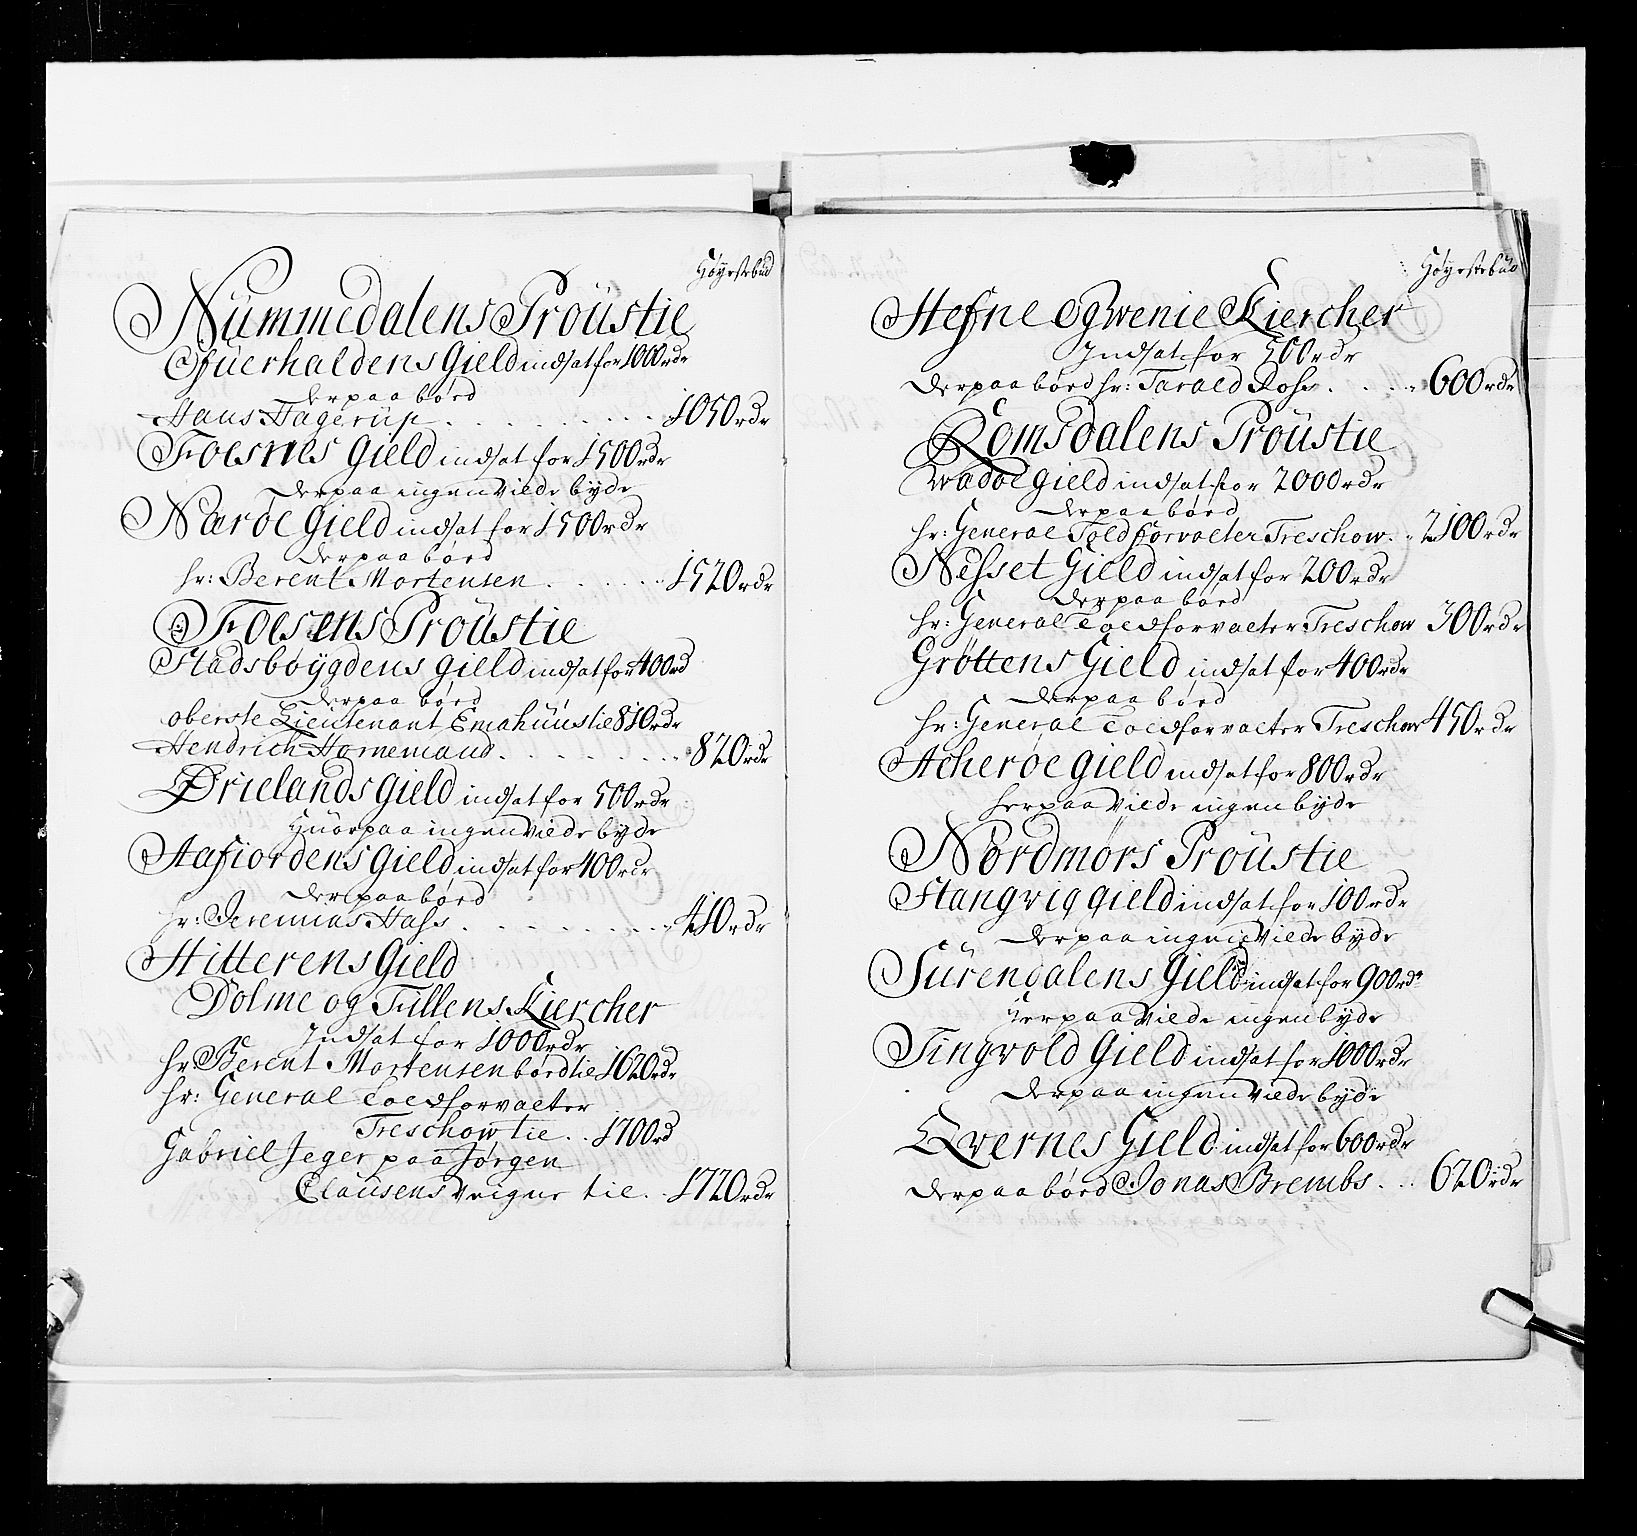 Høyestebud
Nummedalens Proustie
Ofuerhaldens Gield indsat for 1000 rdr
derpaa børd
Hans Hagerup . . . . . . . 1050 rdr
Foesnes Gield indsat for 1500 rdr
derpaa ingen vilde byde
Nærøe Gield indsat for 1500 rdr
derpaa børd
hr: Berent Mortensen . . . . . . 1520 rdr
Foesens Proustie
Stadsbøygdens gield indsat for 400 rd
derpaa børd
oberste Lieutenant Emahuus tie 810 rdr
Hendrich Hornemand . . . . . . . 820 rdr
Ørielands gield indsat for 500 rdr
Huorpaa ingen vilde byde
Aafiordens Gield indsat for 400 rdr
derpaa børd
hr: Jeremias Hass . . . . . . . 410 rdr
Hitterens Gield
Dolme og Fillens Kiercher
Indsat for 1000 rdr
hr: Berent Mortensen børd tie 1620 rdr
hr: General Toldforvalter
Treschow tie . . 1700 rd
Gabriel Jeger paa Jørgen
Clausens Veigne tie . . 1720 rdr
Høyestebud
Hefne og Wenie Kiercher
Indsat for 500 rdr
derpaa børd hr: Tarald Rohs . . . . 600 rdr
Romsdalens Proustie
Wadøe gield indsat for 2000 rdr
derpaa børd
hr: General Toldforvalter Treschow . . 2100 rdr
Nesset Gield indsat for 200 rdr
derpaa børd
hr: General Toldforvalter Treschow 300 rdr
Grøttens Gield indsat for 400 rdr
derpaa børd
hr: General Toldforvalter Treschow 450 rdr
Acherøe gield indsat for 800 rdr
herpaa vilde ingen byde
Nordmørs Proustie
Stangvig gield indsat for 100 rdr
derpaa ingen vilde byde
Surendalens Gield indsat for 900 rdr
herpaa vilde ingen byde
Tingvold Gield indsat for 1000 rdr
derpaa ingen vilde byde
Qvernes Gield indsat for 600 rdr
derpaa børd Jonas Brembs . . . 620 rdr